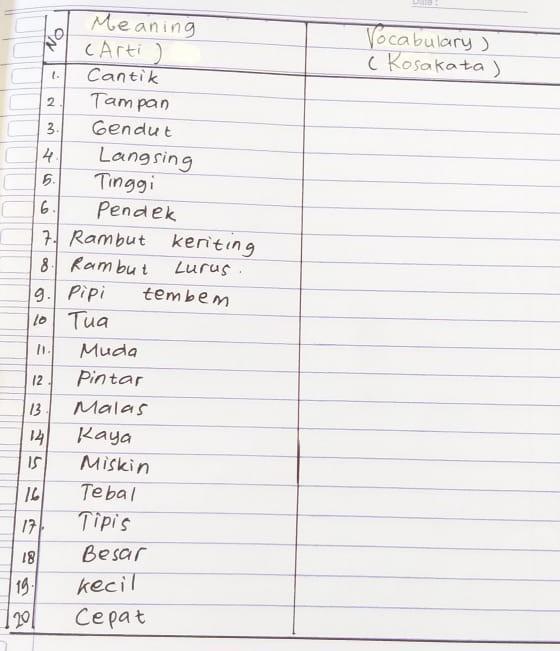 Date:
NO Meaning (Arti) Vocabulary) (Kosakata)
1. Cantik
2. Tampan
3. Gendut
4. Langsing
5. Tinggi
6. Pendek
7. Rambut keriting
8. Rambut Lurus.
9. Pipi tembem
10 Tua
11. Muda
12. Pintar
13. Malas
14 Kaya
15 Miskin
16 Tebal
17. Tipis
18 Besar
19. kecil
20 Cepat